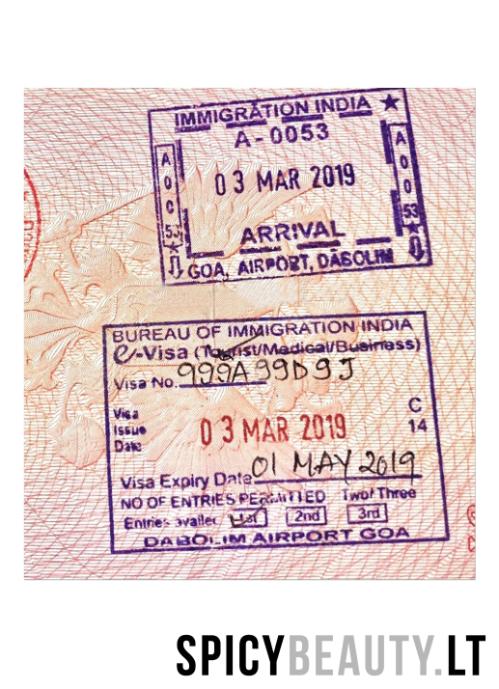 IMMIGRATION INDIA ★
A-0053
03 MAR 2019
ARRIVAL
GOA, AIRPORT, DABOLIM
A 0 0 53
BUREAU OF IMMIGRATION INDIA
e-Visa (Tourist/Medical/Business)
Visa No. 999A99D9J
Visa Issue Date
03 MAR 2019
C 14
Visa Expiry Date 01 MAY 2019
NO OF ENTRIES PERMITTED Two/Three
Entries availed 1st 2nd 3rd
DABOLIM AIRPORT GOA
SPICYBEAUTY.LT